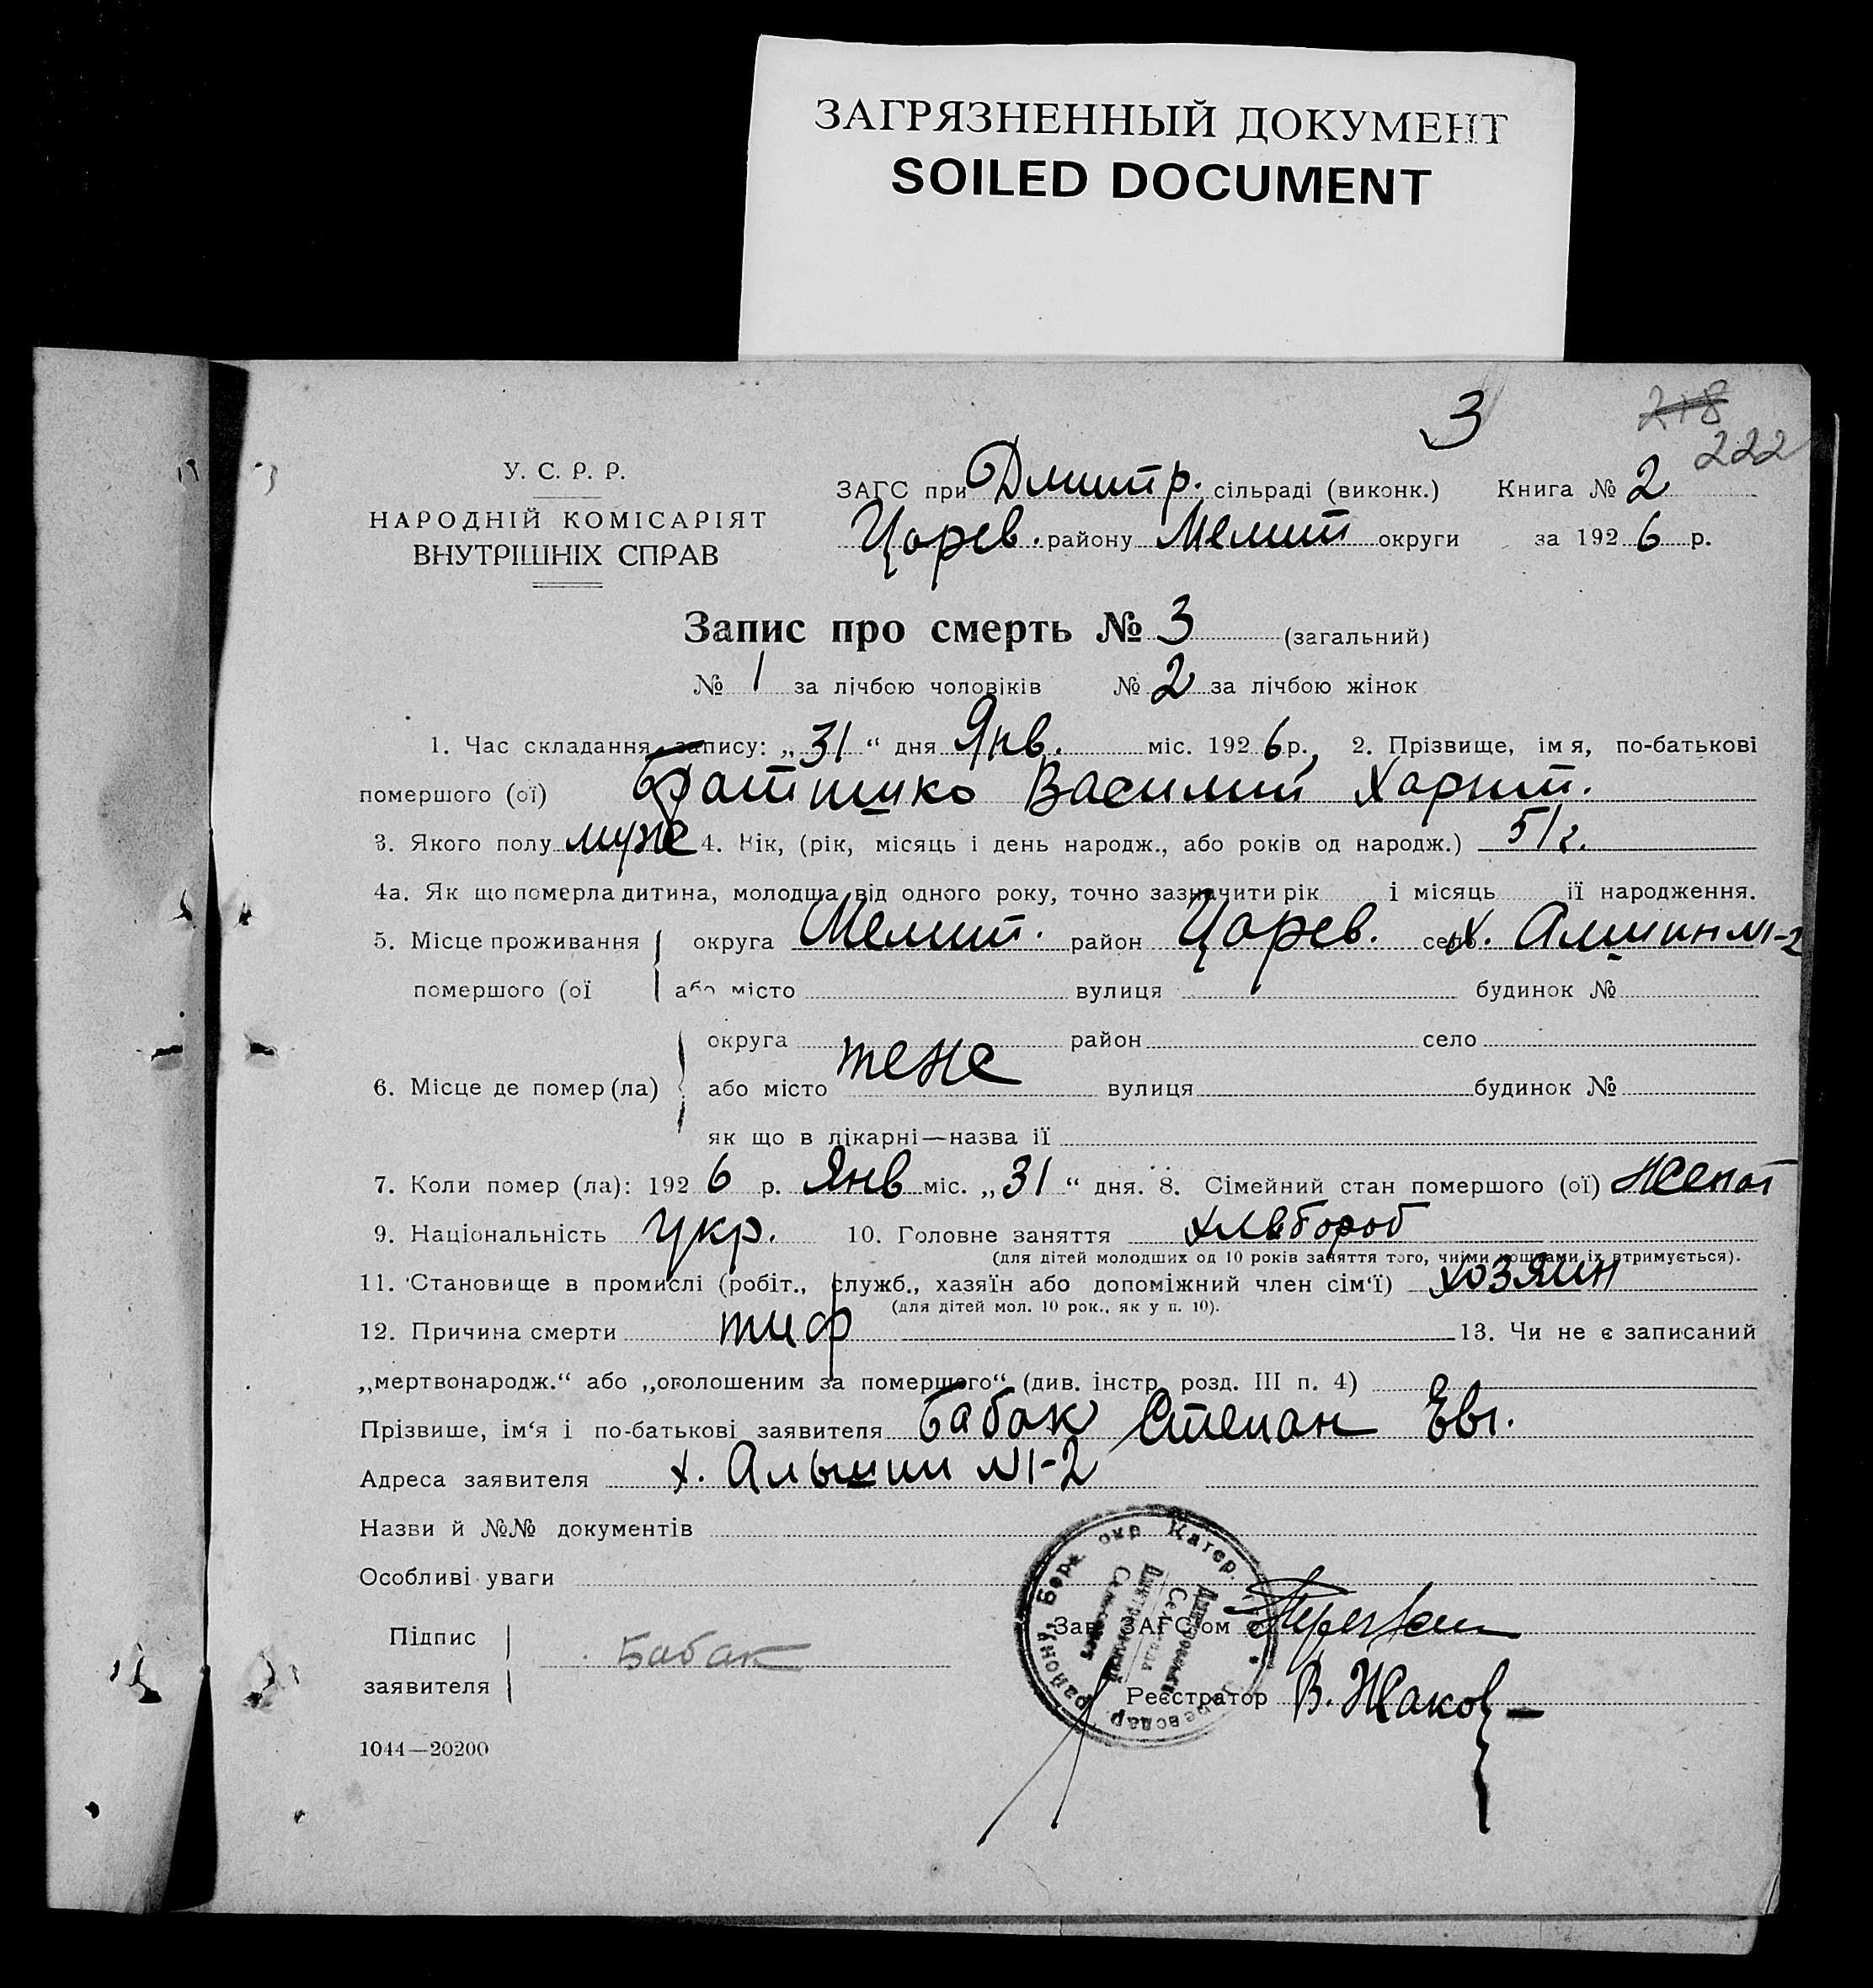 ЗАГРЯЗНЕННЫЙ ДОКУМЕНТ
SOILED DOCUMENT
3
218
222
У. С. Р. Р.
НАРОДНІЙ КОМІСАРІЯТ
ВНУТРІШНІХ СПРАВ
ЗАГС при Дмитр. сільраді (виконк.) Книга № 2
Царев. району Мелит округи за 1926 р.
Запис про смерть № 3 (загальний)
№ 1 за лічбою чоловіків № 2 за лічбою жінок
1. Час складання запису: „31“ дня Янв. міс. 1926 р., 2. Прізвище, імя, по-батькові
помершого (ої) Василий Харит.
3. Якого полу муже 4. Вік, (рік, місяць і день народж., або років од народж.) 51 г.
4а. Як що померла дитина, молодша від одного року, точно зазначити рік і місяць ії народження.
5. Місце проживання округа Мелит. район Царев. село х. №1-2
помершого (ої або місто вулиця будинок №
округа район село
6. Місце де помер (ла) або місто теже вулиця будинок №
як що в лікарні—назва ії
7. Коли помер (ла): 1926 р. Янв міс. „31“ дня. 8. Сімейний стан помершого (ої) Женат
9. Національність Укр. 10. Головне заняття хлебороб
(для дітей молодших од 10 років заняття того, чиїми коштами їх втримується).
11. Становище в промислі (робіт., служб., хазяїн або допоміжний член сім‘ї) хозяин
(для дітей мол. 10 рок., як у п. 10).
12. Причина смерти тиф 13. Чи не є записаний
„мертвонародж.“ або „оголошеним за помершого“ (див. інстр. розд. III п. 4)
Прізвише, ім‘я і по-батькові заявителя Бабак Степан Евг.
Адреса заявителя х. Альшин №1-2
Назви й №№ документів
Особливі уваги
Зав. ЗАГС‘ом
Підпис
заявителя Бабак
Реєстратор В. Жаков
1044—20200